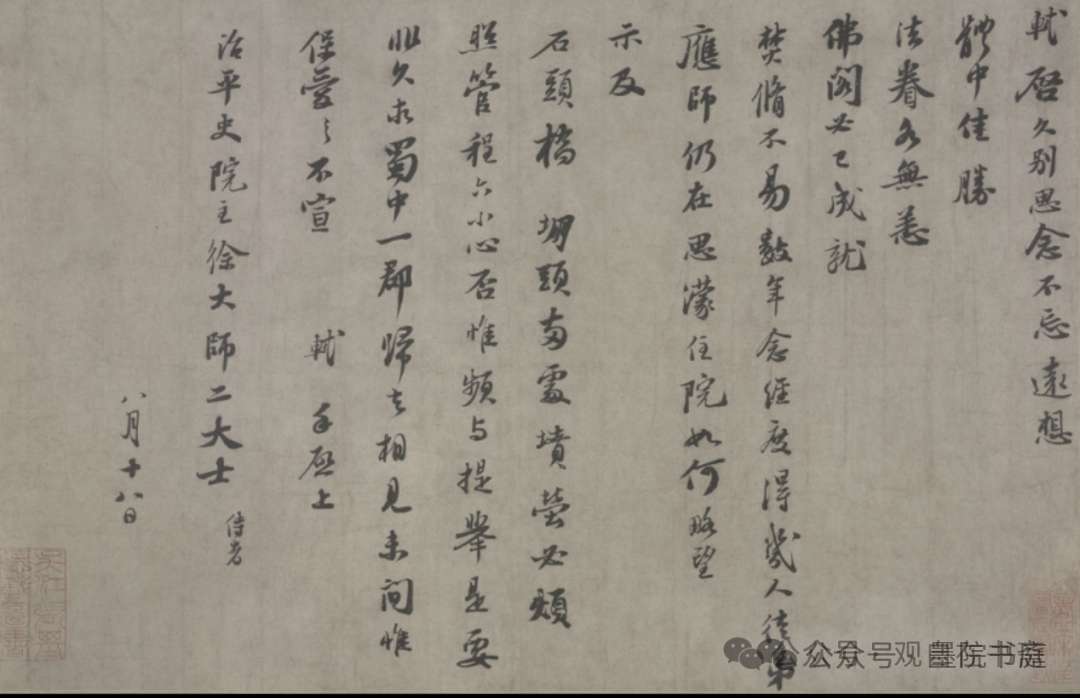 軾啓久别思念不忘遠想
體中佳勝
法眷各無恙
佛閣必已成就
焚脩不易數年念經度得幾人徒弟
應師仍在思濛住院如何略望
示及
石頭橋 堋頭兩處墳塋必煩
照管程六小心否惟頻与提舉是要
非久求蜀中一郡歸去相見未間惟
保愛之不宣 軾 手啓上
治平史院主徐大師二大士 侍者
八月十八日
公众号 观墨院书庭